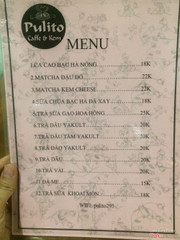 Pulito
Caffe & Kem
MENU
1.CA CAO BẠC HÀ NÓNG 18K
2.MATCHA ĐẬU ĐỎ 22K
3.MATCHA KEM CHEESE 22K
4.SỮA CHUA BẠC HÀ ĐÁ XAY 18K
5.TRÀ SỮA GẠO HOA HỒNG 25K
6.TRÀ DÂU YAKULT 20K
7.TRÀ TẦM YAKULT 20K
8.TRÀ ĐÀO YAKULT 20K
9.TRÀ DÂU 20K
10.TRÀ VẢI 20K
11.ĐÁ ME 15K
12.TRÀ SỮA KHOAI MÔN 18K
WIFI: pulito291